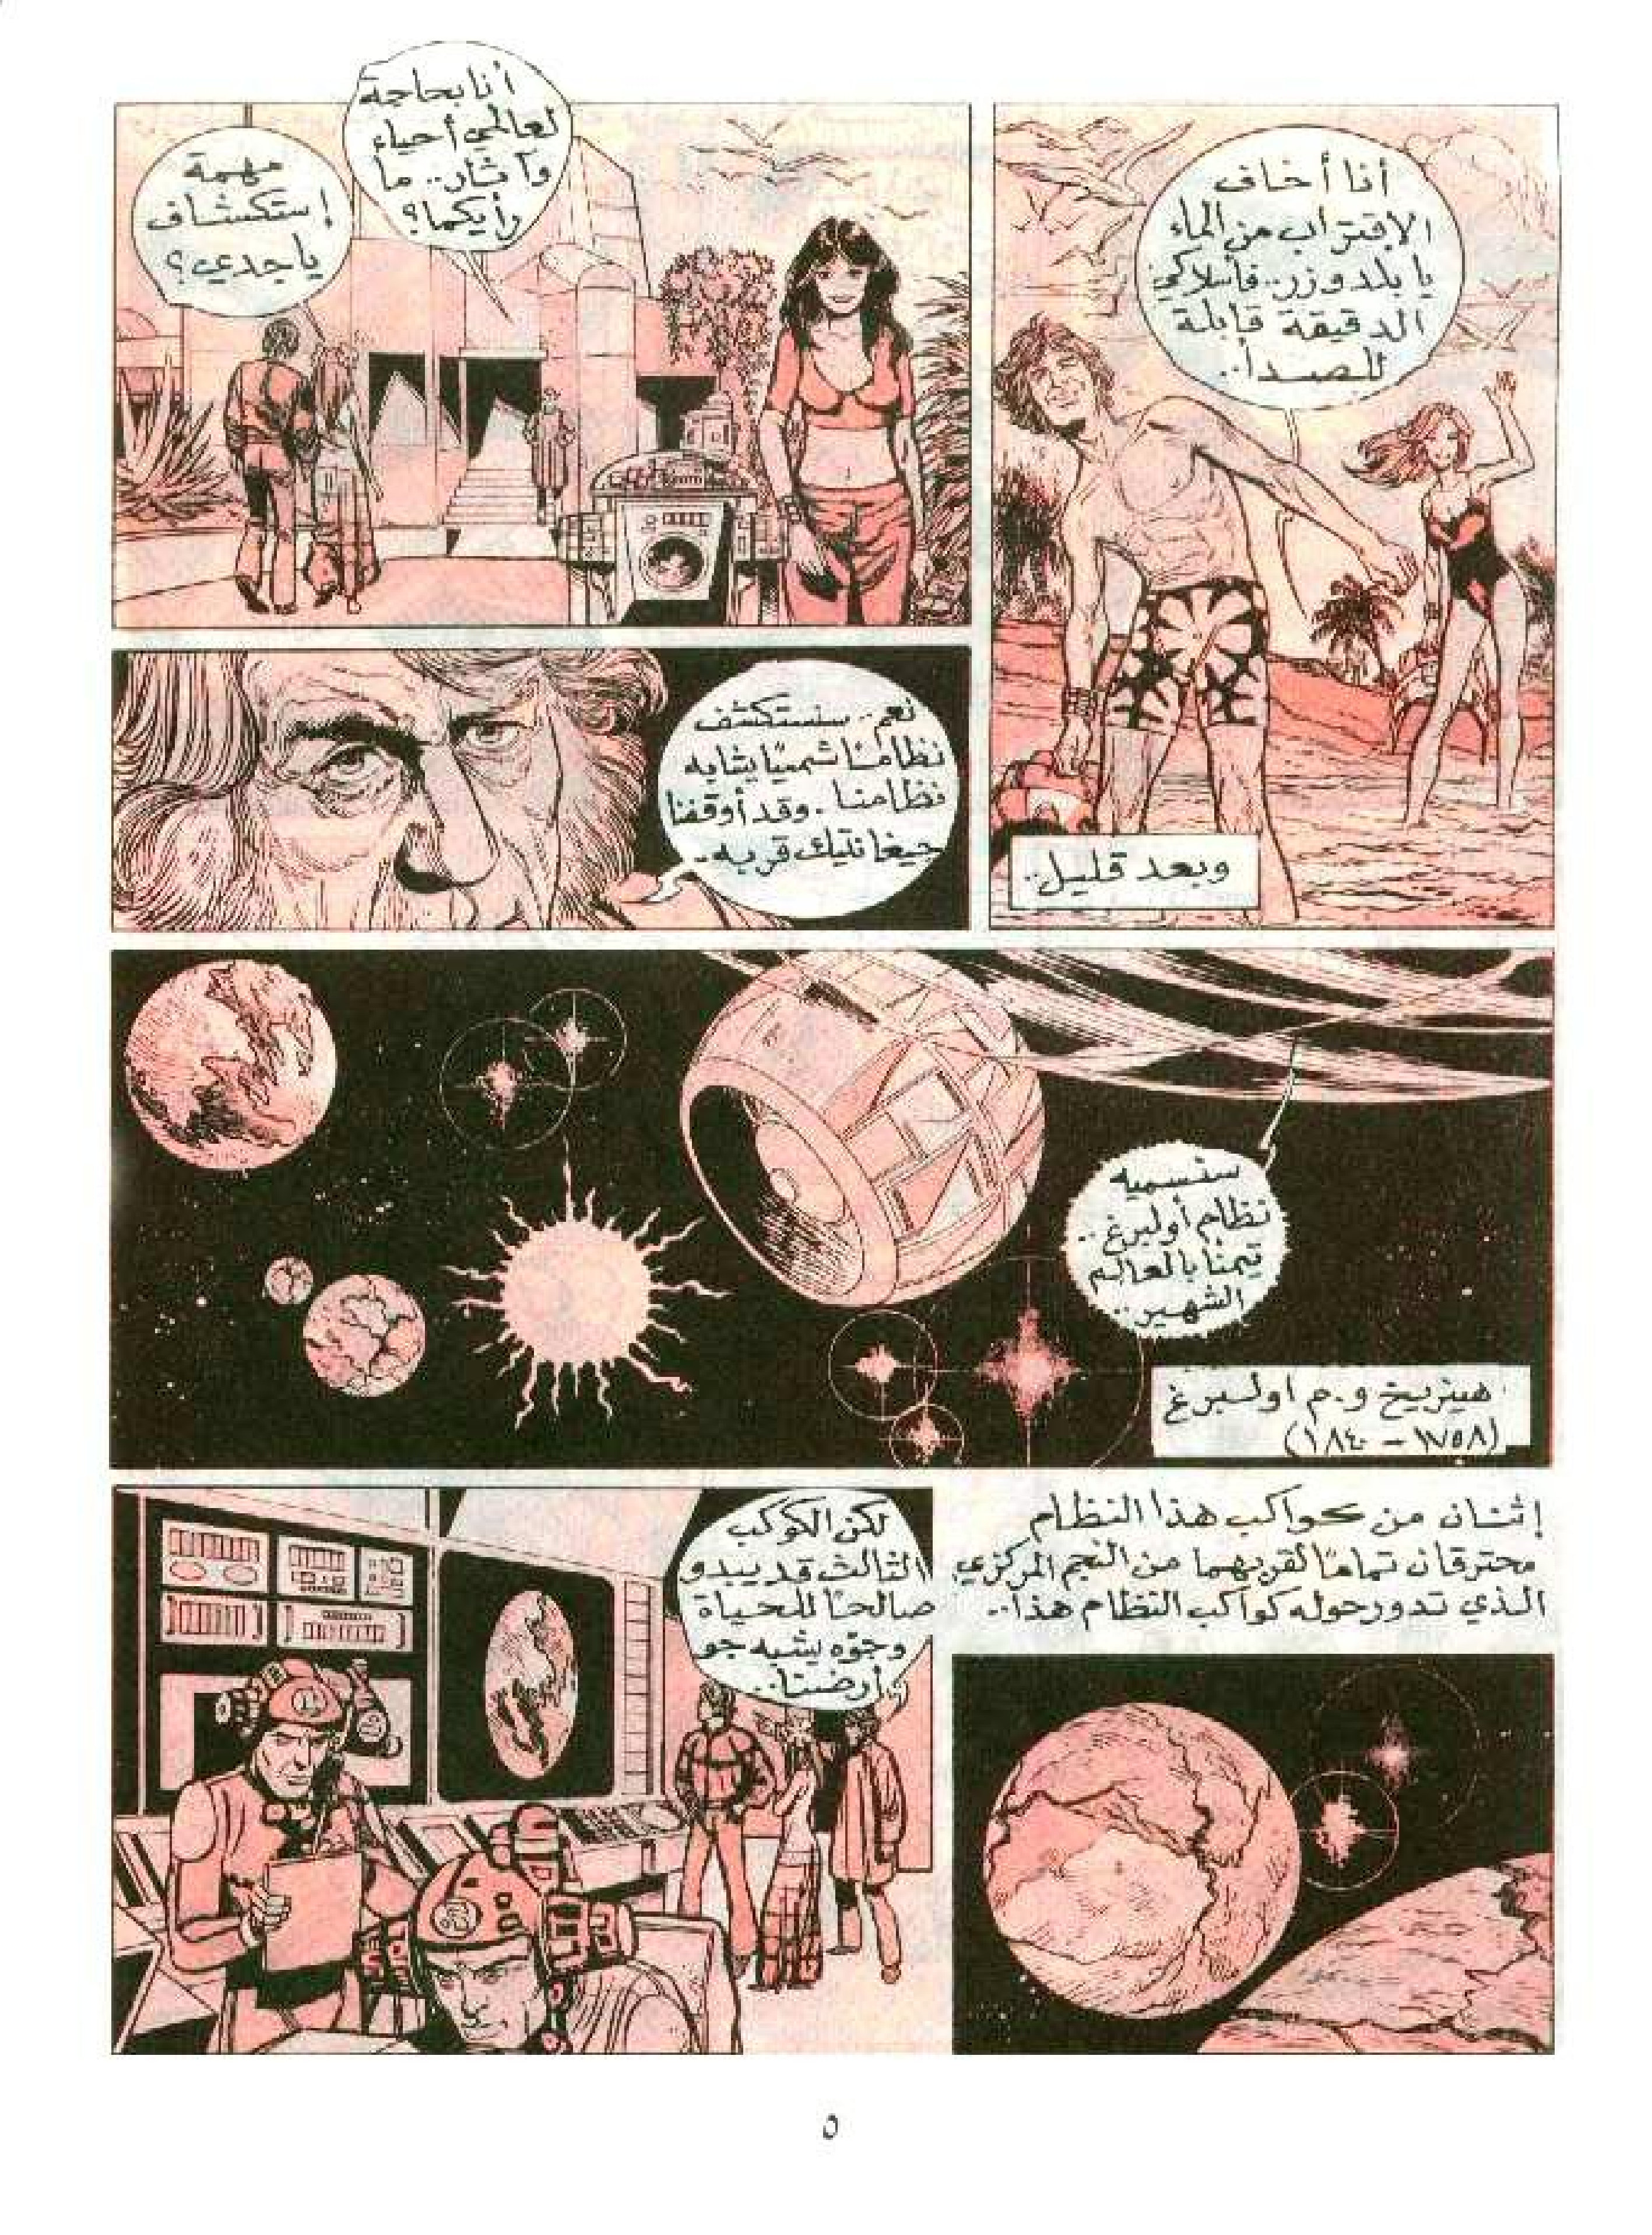 أنا أخاف
الاقتراب من الماء
يا بلدوزر.. فأسلاكي
الدقيقة قابلة
للصدأ..
وبعد قليل..
أنا بحاجة
لعالمي أحياء
وآثار.. ما
رأيكما؟
مهمة
إستكشاف
يا جدي؟
نعم.. سنستكشف
نظامًا شمسيًا يشابه
نظامنا. وقد أوقفنا
جيغانتيك قربه..
سنسميه
نظام أولبرغ..
تيمنًا بالعالم
الشهير..
هينريخ و.م اولبرغ
(١٧٥٨ - ١٨٤٠)
إثنان من كواكب هذا النظام
محترقان تمامًا لقربهما من النجم المركزي
الذي تدور حوله كواكب النظام هذا..
لكن الكوكب
الثالث قد يبدو
صالحًا للحياة
وجوّه يشبه جو
أرضنا..
٥